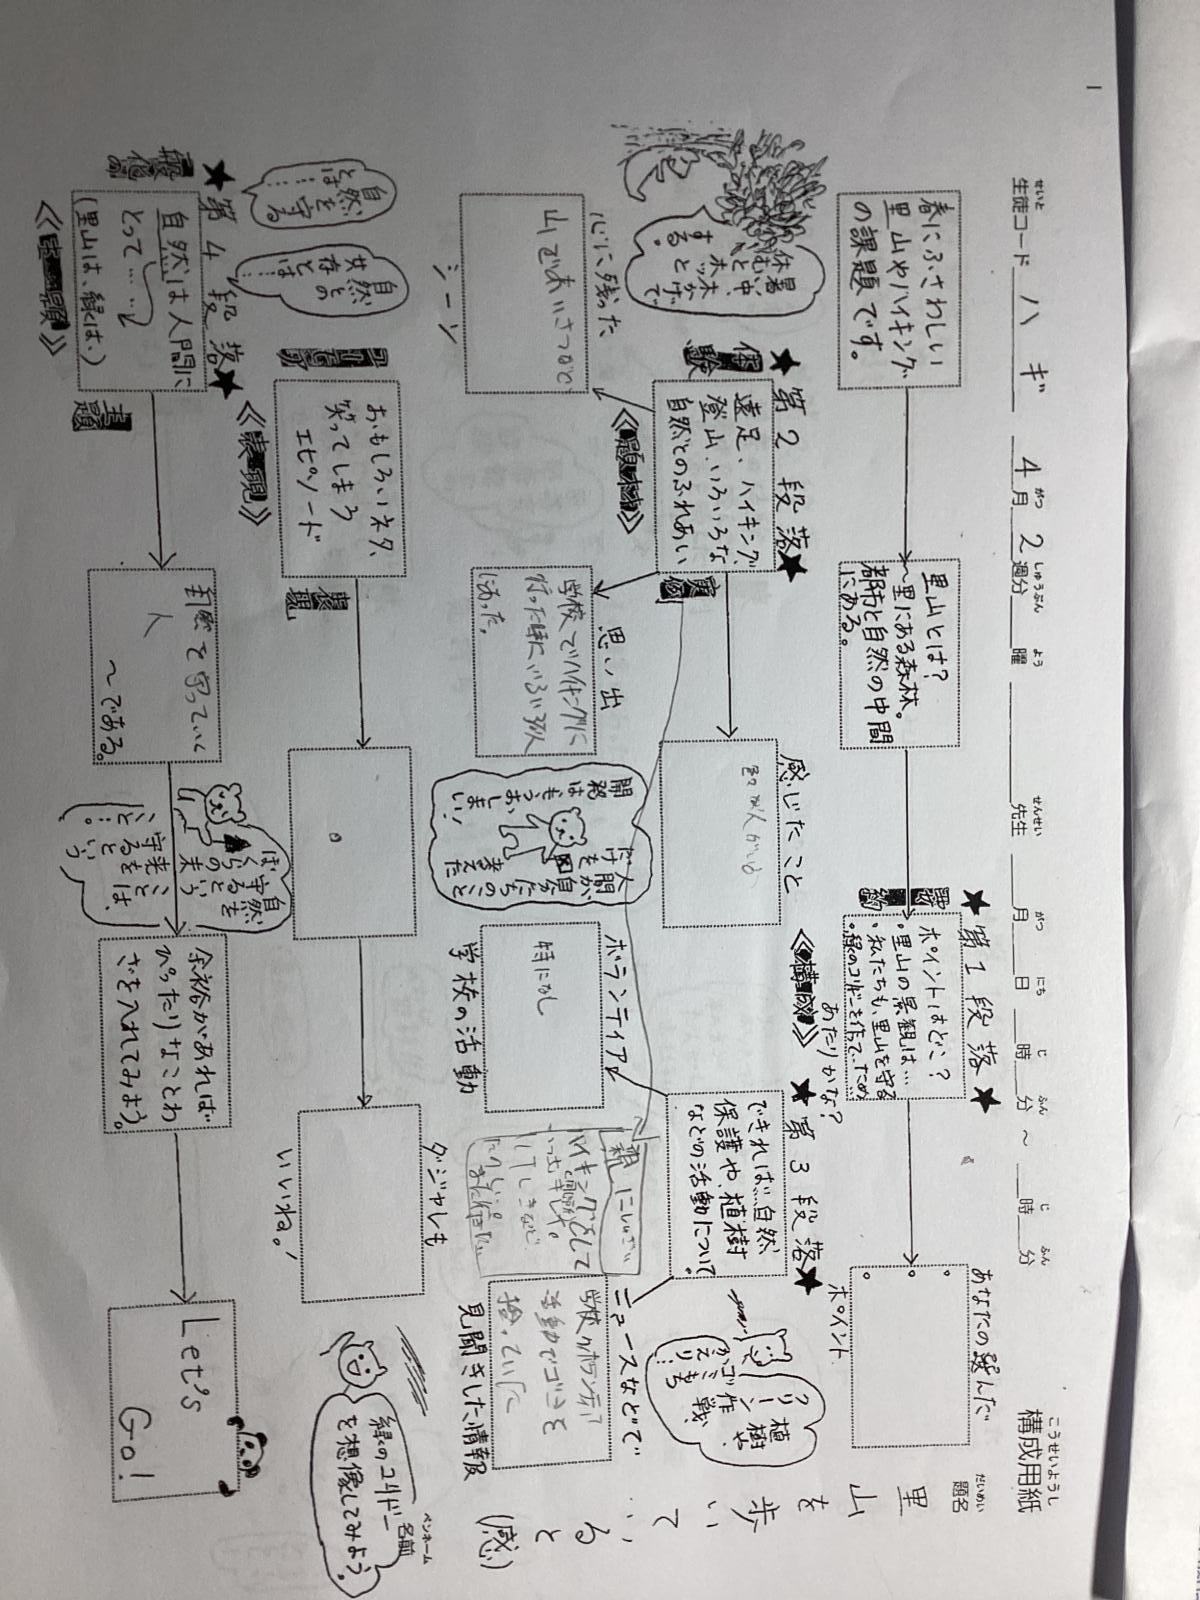 構成用紙
こうせいようし
生徒コード ハギ 4月2週分 曜 先生 月 日 時 分 ～ 時 分
せいと がつ しゅうぶん よう せんせい がつ にち じ ふん じ ふん
題名
だいめい
里山を歩いていると (感)
ペンネーム
名前
春にふさわしい
里山やハイキング
の課題です。
里山とは?
～里にある森林。
都市と自然の中間
にある。
★第1段落★
要約
ポイントはどこ?
・里山の景観は…
・私たちも、里山を守る
・緑のコリドーを作っていくため
あたりかな?
あなたの選んだ
ポイント
★第2段落★
体験
遠足、ハイキング、
登山、いろいろな
自然とのふれあい
《題材》
実例
暑い中、
休むと
ホッと
する。
木かげで
感じたこと
《構成》
★第3段落★
できれば自然
保護や、植樹
などの活動について。
植樹や、
クリーン作戦、
ゴミもち
かえり…
心に残った
シーン
山であいさつ
思い出
学校でハイキングに
行った時にいろいろな人
に会った。
開発は
もうおしまい!
人間だけが、
自分たちの
ことを考えた
ボランティア
学校の活動
特になし
親に
ハイキング
ニュースなどで
見聞きした情報
学校のボランティア
活動でゴミを
拾っていた
自然を守る
とは……
自然との
共存とは
……
ユーモア
おもしろいネタ、
笑ってしまう
エピソード
《表現》
表現
ダジャレも
いいね。
緑のコリドー
を想像してみよう。
★第4段落★
最後の
自然は人間に
とって……
(里山は、緑は、)
《主題》
主題
自然を守っていく
人
～である。
自然を
守るという
ことは、
ぼくらの未来を
守ること…。
余裕があれば
ぴったりなことわ
ざを入れてみよう。
Let's
Go!
1